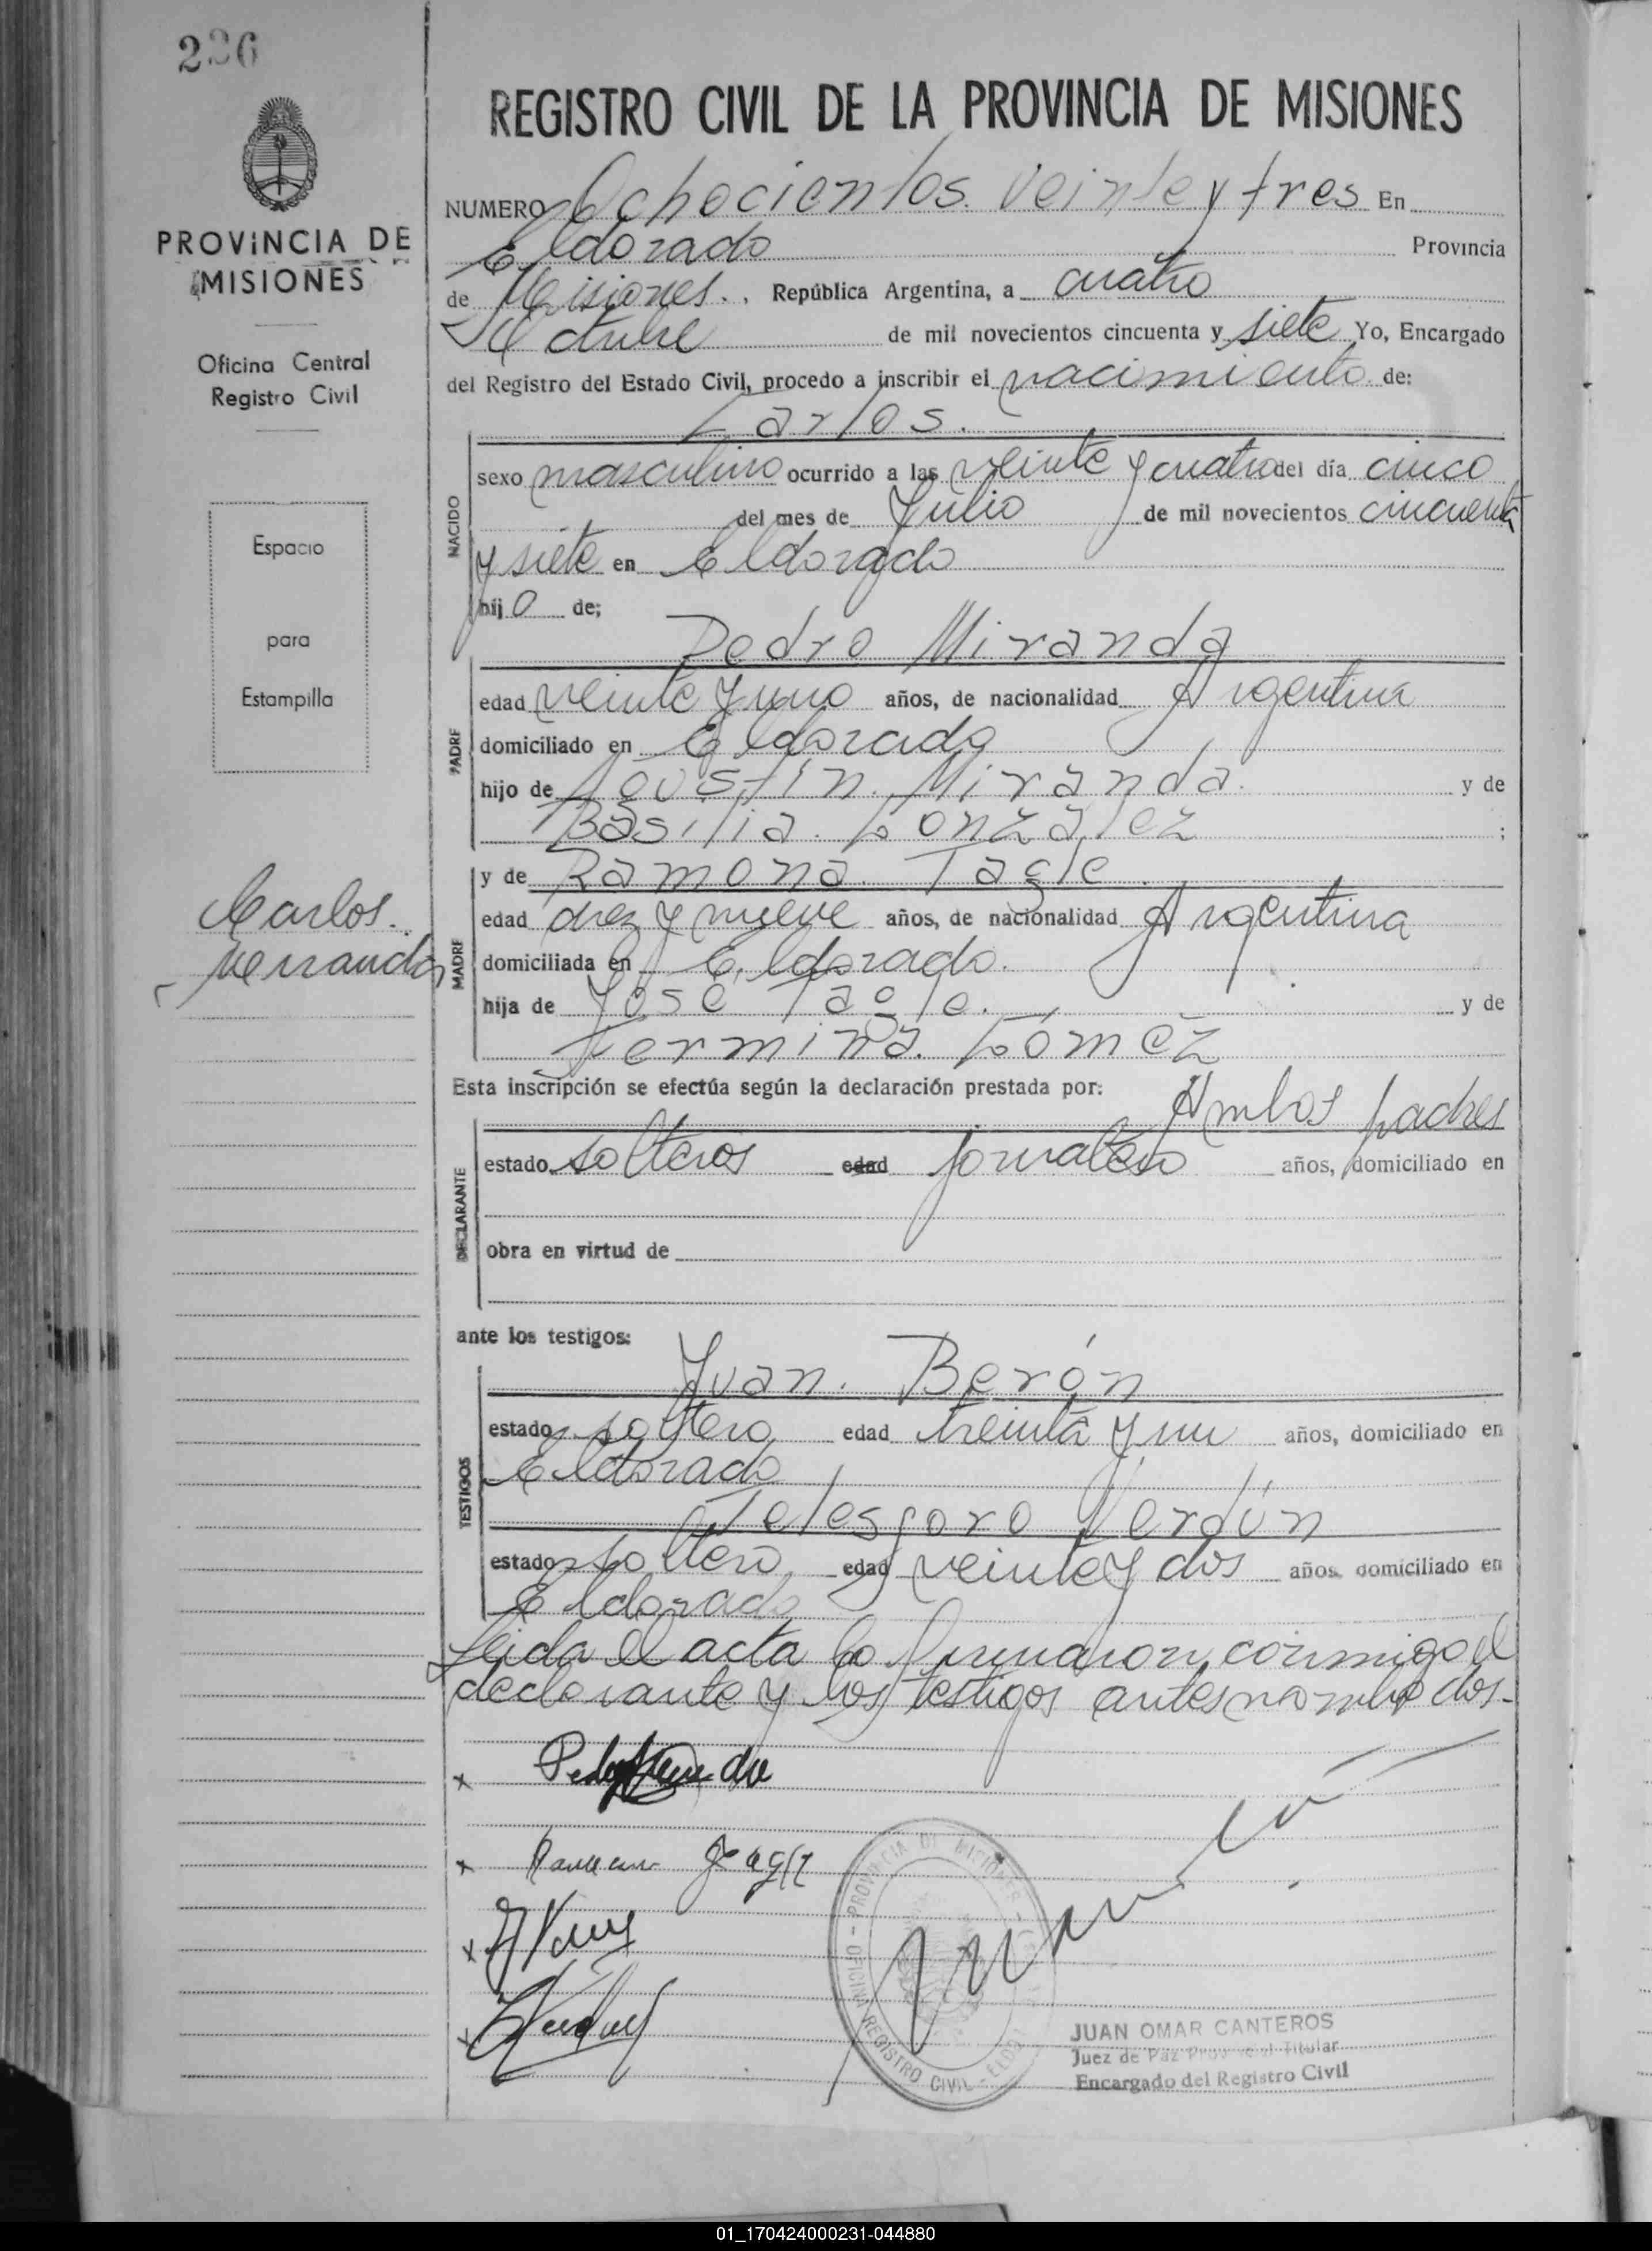 236
REGISTRO CIVIL DE LA PROVINCIA DE MISIONES
PROVINCIA DE
MISIONES
Oficina Central
Registro Civil
Espacio
para
Estampilla
Carlos.
Miranda
NUMERO Ochocientos. Veinte y tres En
Eldorado Provincia
de Misiones., República Argentina, a cuatro
Octubre de mil novecientos cincuenta y siete Yo, Encargado
del Registro del Estado Civil, procedo a inscribir el nacimiento de:
Carlos.
NACIDO
sexo masculino ocurrido a las veinte y cuatro del día cinco
del mes de Julio de mil novecientos cincuenta
y siete en Eldorado
hijo de;
Pedro Miranda
PADRE
edad veinte y uno años, de nacionalidad Argentina
domiciliado en Eldorado
hijo de Agustín. Miranda. y de
Basilia. González ;
MADRE
y de Ramona. Tagle
edad diez y nueve años, de nacionalidad Argentina
domiciliada en Eldorado.
hija de José Tagle. y de
Fermina. Gómez
Esta inscripción se efectúa según la declaración prestada por:
Ambos padres
DECLARANTE
estado solteros edad jornalero años, domiciliado en
obra en virtud de
ante los testigos:
Juan. Berón
TESTIGOS
estado soltero edad treinta y un años, domiciliado en
Eldorado
Telesforo Verdún
estado soltero edad veinte y dos años, domiciliado en
Eldorado
Leida el acta la firmaron conmigo el
declarante y los testigos antes nombrados.-
x
x
x
x
PROVINCIA DE MISIONES
OFICINA REGISTRO CIVIL - ELDO
JUAN OMAR CANTEROS
Juez de Paz Titular
Encargado del Registro Civil
01_170424000231-044880